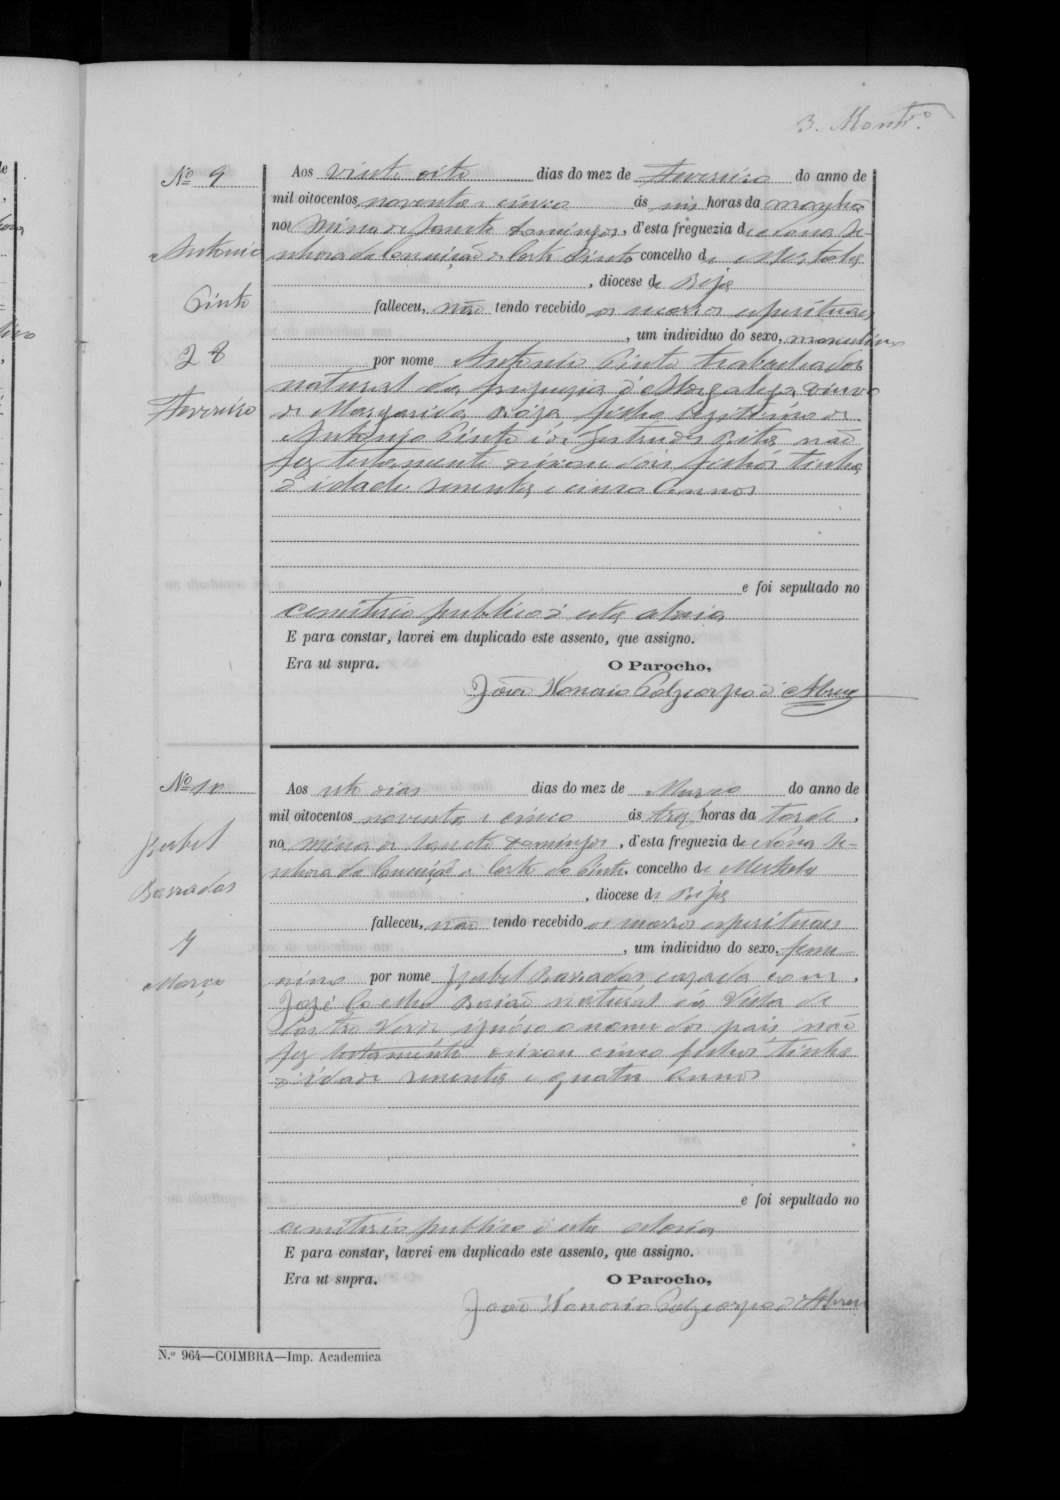 3. Montr.º
Nº 9
Antonio
Pinto
28
Fevereiro
Aos vinte oito dias do mez de Fevereiro do anno de
mil oitocentos noventa e cinco ás horas da manhã
nos Mina de Sancto Domingos, d'esta freguezia de Nossa Se-
nhora da Conceição de Corte Pinto concelho de Mertola
, diocese de Beja
falleceu, não tendo recebido os espirituaes
, um individuo do sexo, masculino
por nome Antonio Pinto trabalhador
natural da freguezia d' viuvo
de Margarida Roza filho legitimo de
Antonio Pinto e de Gertrudes Rita não
fez testamento deixou dois filhos tinha
d'idade e cinco annos
e foi sepultado no
cemiterio publico d'esta aldeia
E para constar, lavrei em duplicado este assento, que assigno.
Era ut supra. O Parocho,
João Honorio Polycarpo d'Abreu
Nº 10
Izabel
Barradas
Março
Aos dias dias do mez de Março do anno de
mil oitocentos noventa e cinco ás trez horas da tarde,
no Mina de Sancto Domingos, d'esta freguezia de Nossa Se-
nhora da Conceição de Corte do Pinto, concelho de Mertola
, diocese de Beja
falleceu, não tendo recebido os espirituaes
, um individuo do sexo, femi-
nino por nome Izabel Barradas cazada com,
Jozé Coelho natural da Villa de
Castro Verde ignóro o nome dos pais não
fez testamento deixou cinco filhos tinha
d'idade e quatro annos
e foi sepultado no
cemiterio publico d'esta aldeia
E para constar, lavrei em duplicado este assento, que assigno.
Era ut supra. O Parocho,
João Honorio Polycarpo d'Abreu
N.º 964—COIMBRA—Imp. Academica